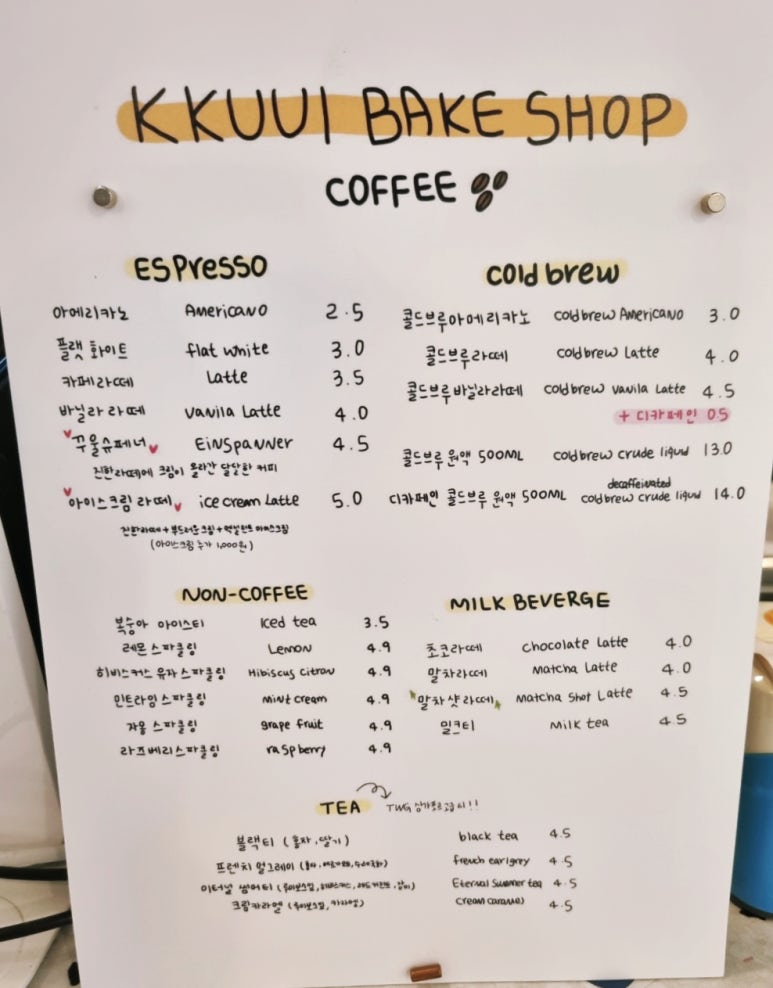 KKUUI BAKE SHOP
COFFEE
Espresso
아메리카노 Americano 2.5
플랫 화이트 flat white 3.0
카페라떼 Latte 3.5
바닐라 라떼 vanila Latte 4.0
꾸울슈페너 EINSPANNER 4.5
진한라떼에 크림이 올라간 달달한 커피
아이스크림 라떼 ice cream Latte 5.0
진한라떼+부드러운크림+ 아이스크림
(아이스크림 추가 1,000원)
cold brew
콜드브루아메리카노 coldbrew Americano 3.0
콜드브루라떼 coldbrew Latte 4.0
콜드브루바닐라라떼 coldbrew vanila Latte 4.5
+ 디카페인 0.5
콜드브루 원액 500ML coldbrew crude liquid 13.0
디카페인 콜드브루 원액 500ML decaffeinated coldbrew crude liquid 14.0
NON-COFFEE
복숭아 아이스티 Iced tea 3.5
레몬 스파클링 Lemon 4.9
히비스커스 유자 스파클링 Hibiscus citron 4.9
민트라임 스파클링 mint cream 4.9
자몽 스파클링 grape fruit 4.9
라즈베리스파클링 raspberry 4.9
MILK BEVERGE
초코라떼 chocolate Latte 4.0
말차라떼 Matcha Latte 4.0
말차샷라떼 Matcha shot Latte 4.5
밀크티 Milk tea 4.5
TEA TWG 싱가포르고급티!!
블랙티 (홍차,딸기) black tea 4.5
프렌치 얼그레이 french earlgrey 4.5
이터널 썸머티 Eternal Summer tea 4.5
크림카라멜 (루이보스잎, 카라멜) cream caramel 4.5